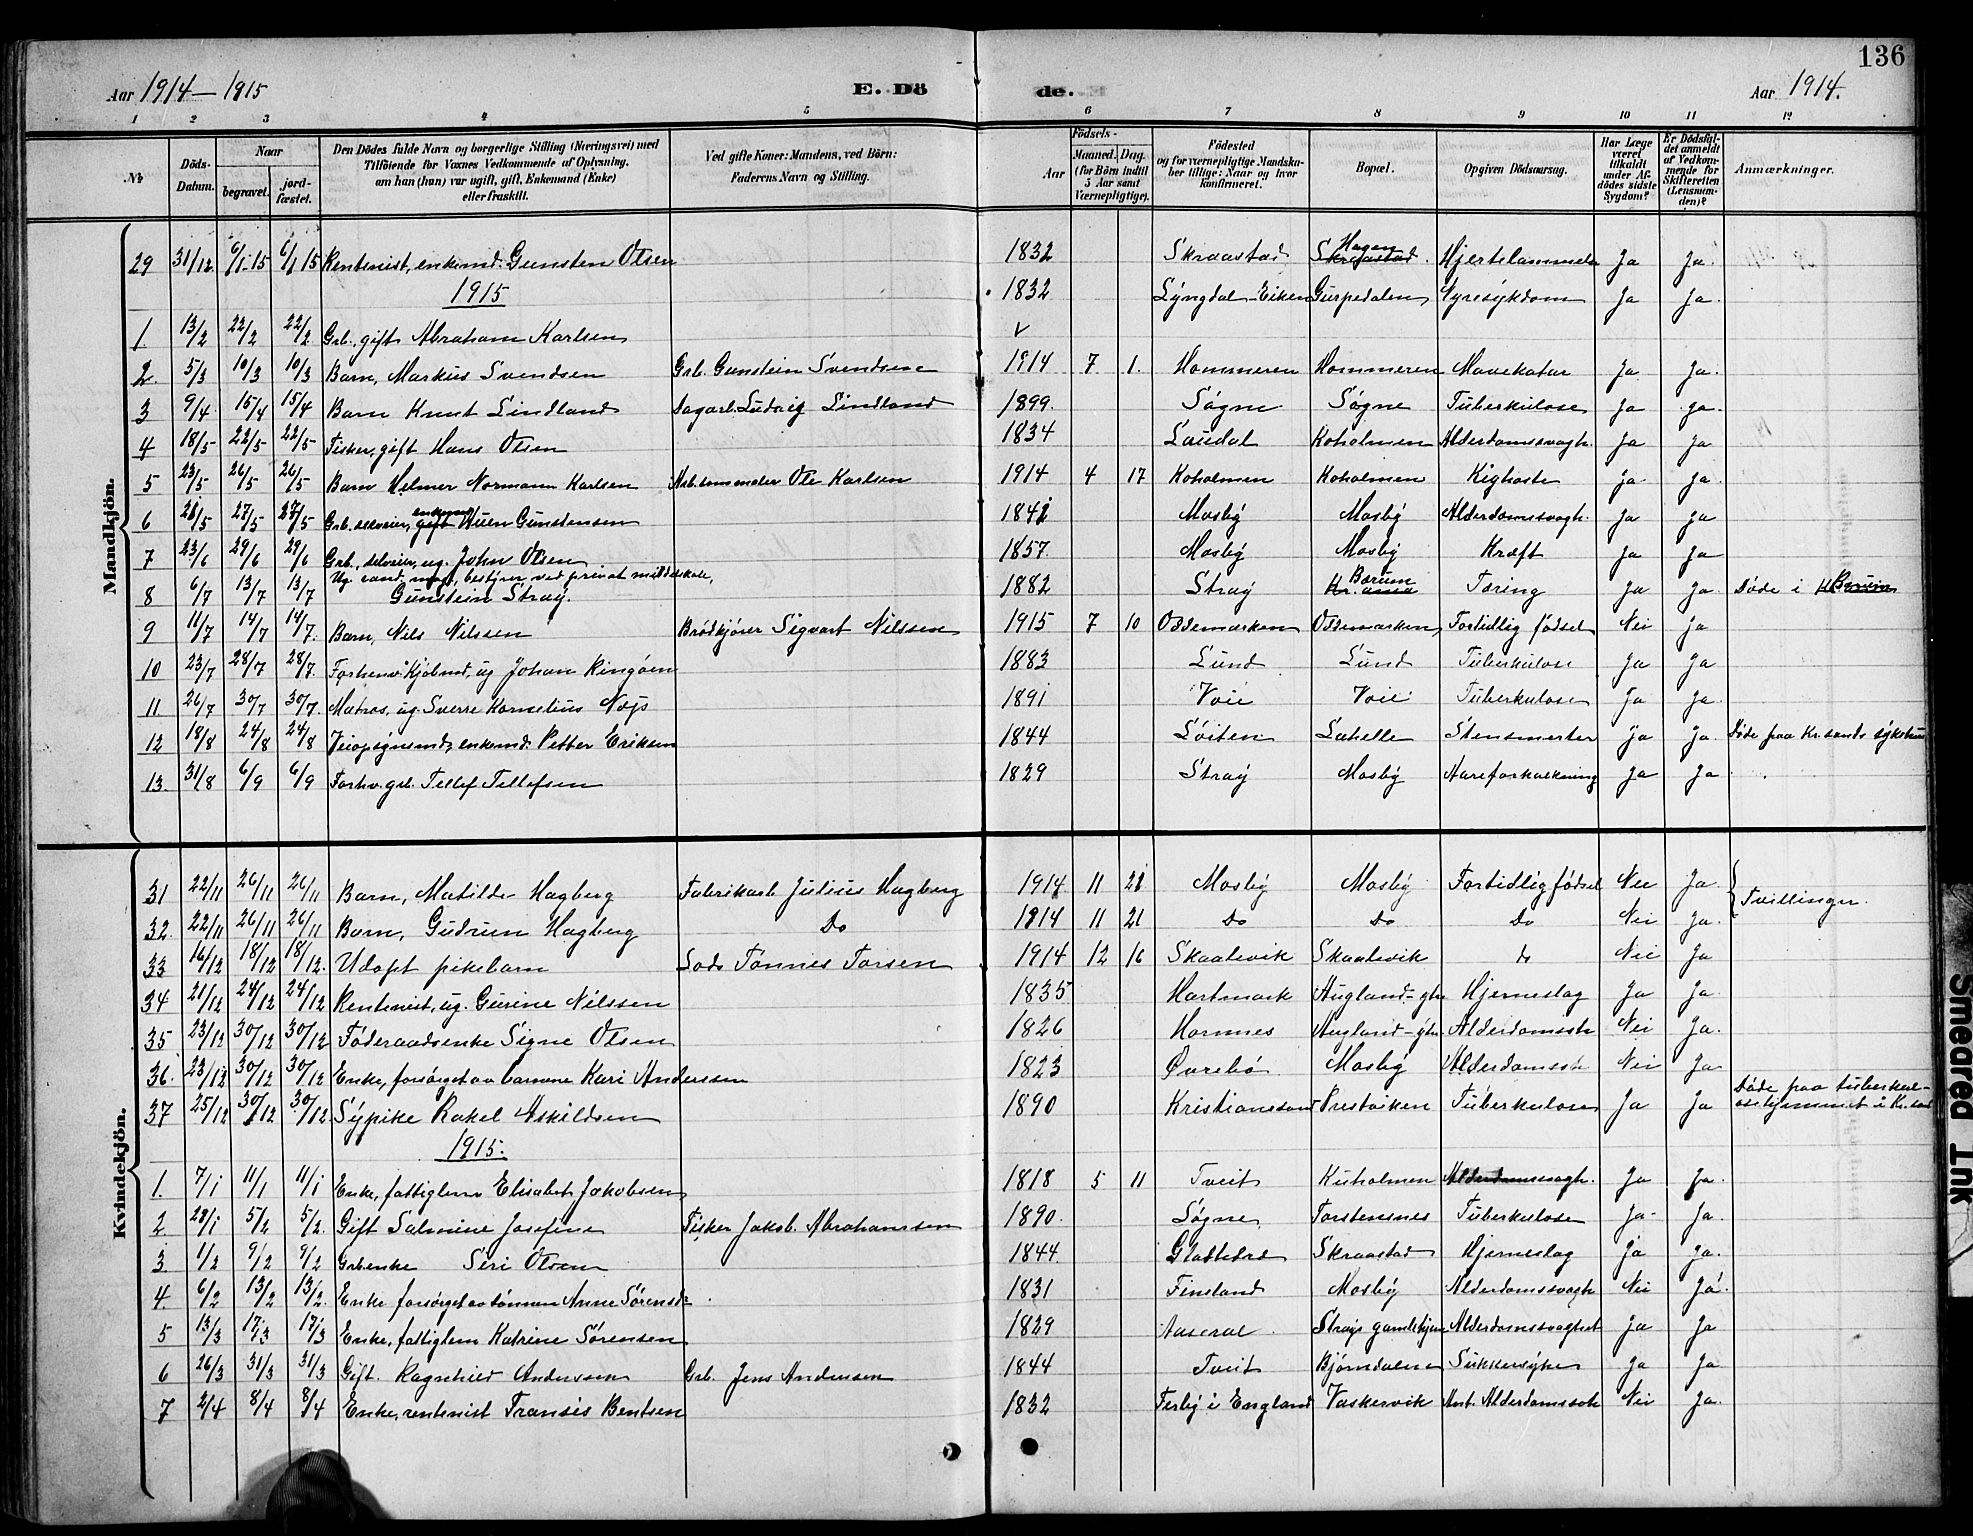 136
Aar 1914 – 1915 E. Dö de. Aar 1914.
1 2 3 4 5 6 7 8 9 10 11 12
№ Döds-Datum. Naar begravet. jordfæstet. Den Dödes fulde Navn og borgerlige Stilling (Næringsvei) med Tilföiende for Voxnes Vedkommende af Oplysning, om han (hun) var ugift, gift, Enkemand (Enke) eller fraskilt. Ved gifte Koner: Mandens, ved Börn: Faderens Navn og Stilling. Födsels- Aar Maaned. Dag. (for Börn indtil 5 Aar samt Værnepligtige). Födested og for værnepligtige Mandskaber tillige: Naar og hvor konfirmeret. Bopæl. Opgiven Dödsaarsag. Har Læge været tilkaldt under Afdödes sidste Sygdom? Er Dödsfaldet anmeldt af Vedkommende for Skifteretten (Lensmanden)? Anmærkninger.
Mandkjön.
29 31/12 6/1-15 6/1 15 Rentenist, enkemd. Gunsten Olsen 1832 Skraastad Hagen Skraastad. Hjertelammelse Ja Ja.
1915
1832 Lyngdal-Eiken Gurpedalen Nyresykdom Ja Ja
1. 13/2 22/2 22/2 Grb., gift Abraham Karlsen
2. 5/3 10/3 10/3 Barn, Markus Svendsen Grb. Gunstein Svendsen 1914 7 1. Hommeren Hommeren Mavekatar Ja Ja.
3 9/4 15/4 15/4 Barn Knut Lindland Dagarb. Ludvig Lindland 1899. Søgne Søgne Tuberkulose Ja Ja.
4 18/5 22/5 22/5 Fisker, gift Hans Olsen 1834 Laudal Koholmen Alderdomssvagh. Ja Ja
5 23/5 26/5 26/5 Barn Helmer Normann Karlsen Ole Karlsen 1914 4 17 Koholmen Koholmen Kighoste Ja Ja
6 21/5 27/5 27/5 Grb. selveier, enkemd gift Auen Gunstensen 1842 Mosby Mosby Alderdomssvagh. Ja Ja
7 23/6 29/6 29/6 Grb., selveier, ug. John Olsen 1857. Mosby Mosby Kræft Ja Ja
8 6/7 13/7 13/7 Ug. cand. mag., bestyrer ved privat middelskole, Gunstein Stray. 1882 Stray Bærum Kr.ania Tæring Ja Ja. Døde i Bærum
9 11/7 14/7 14/7. Barn, Nils Nilssen Brødkjører Sigvart Nilssen 1915 7 10 Oddemarken Oddemarken, Fortidlig fødsel Nei Ja
10 23/7 28/7 28/7. Forhenv. Kjøbmd, ug Johan Ringøen 1883 Lund Lund Tuberkulose Ja Ja
11. 26/7 30/7 30/7. Matros, ug. Sverre Kornelius Næss 1891 Voie Voie Tuberkulose Ja Ja.
12 18/8 24/8 24/8 Veiopsynsmd, enkemd. Petter Eriksen 1844 Løiten Lahelle Stensmerter Ja Ja. Døde paa Kr.sands sykehus
13. 31/8 6/9 6/9 Forhv. grb. Tellef Tellefsen 1829 Stray Mosby Aareforkalkning Ja Ja
Kvindekjön.
31 22/11 26/11 26/11 Barn, Matilde Hagberg Fabrikarb Julius Hagberg 1914 11 21 Mosby Mosby Fortidlig fødsel Nei Ja. Tvillinger.
32. 22/11 26/11 26/11 Barn, Gudrun Hagberg Do 1914 11 21 Do Do Do Nei Ja.
33 16/12 18/12 18/12. Udøpt pikebarn Lods Tønnes Torsen 1914 12 16 Skaalevik Skaalevik do Nei Ja
34 21/12 24/12 24/12 Rentenist, ug. Gurine Nilssen 1835 Hartmark Augland-gtn Hjerneslag Ja Ja.
35 23/12 30/12 30/12 Føderaadsenke Signe Olsen 1826 Hornnes Augland-gtn Alderdomssv Nei Ja.
36. 23/12 30/12 30/12 Enke, forsørget av barnene Kari Anderssen 1823 Øvrebø Mosby Alderdomssv Nei Ja.
37 25/12 30/12 30/12. Sypike Rakel Askildsen 1890 Kristianssand Prestviken Tuberkulose Ja Ja Døde paa tuberkulosehjemmet i Kr.sand
1915.
1. 7/1 11/1 11/1 Enke, fattiglem Elisabet Jakobsen 1818 5 11 Tveit Kuholmen Alderdomssvagh. Ja Ja.
2 28/1 5/2 5/2. Gift Salmine Josefine Fisker Jakob Abrahamsen 1890. Søgne Torstensnes Tuberkulose Ja. Ja.
3. 1/2 9/2 9/2 Grb.enke Siri Olsen 1844. Skraastad Hjerneslag Ja Ja.
4. 6/2 13/2 13/2. Enke forsørget av sønnen Anne Sørensd. 1831 Finsland Mosby Alderdomssvagh Nei Ja.
5 13/3 17/3 17/3 Enke, fattiglem Katrine Sørensen 1829 Aaseral Strays gamlehjem Alderdomssvaghet Ja Ja
6 26/3 31/3 31/3 Gift. Ragnhild Anderssen Grb. Jens Andersen 1844 Tveit Bjørndalen Sukkersyke Ja Ja.
7 2/4 8/4 8/4 Enke, rentenist Fransis Bentsen 1832 Ferby i England Vaskervik Ant. Alderdomssv Nei Ja.
Smeared Ink